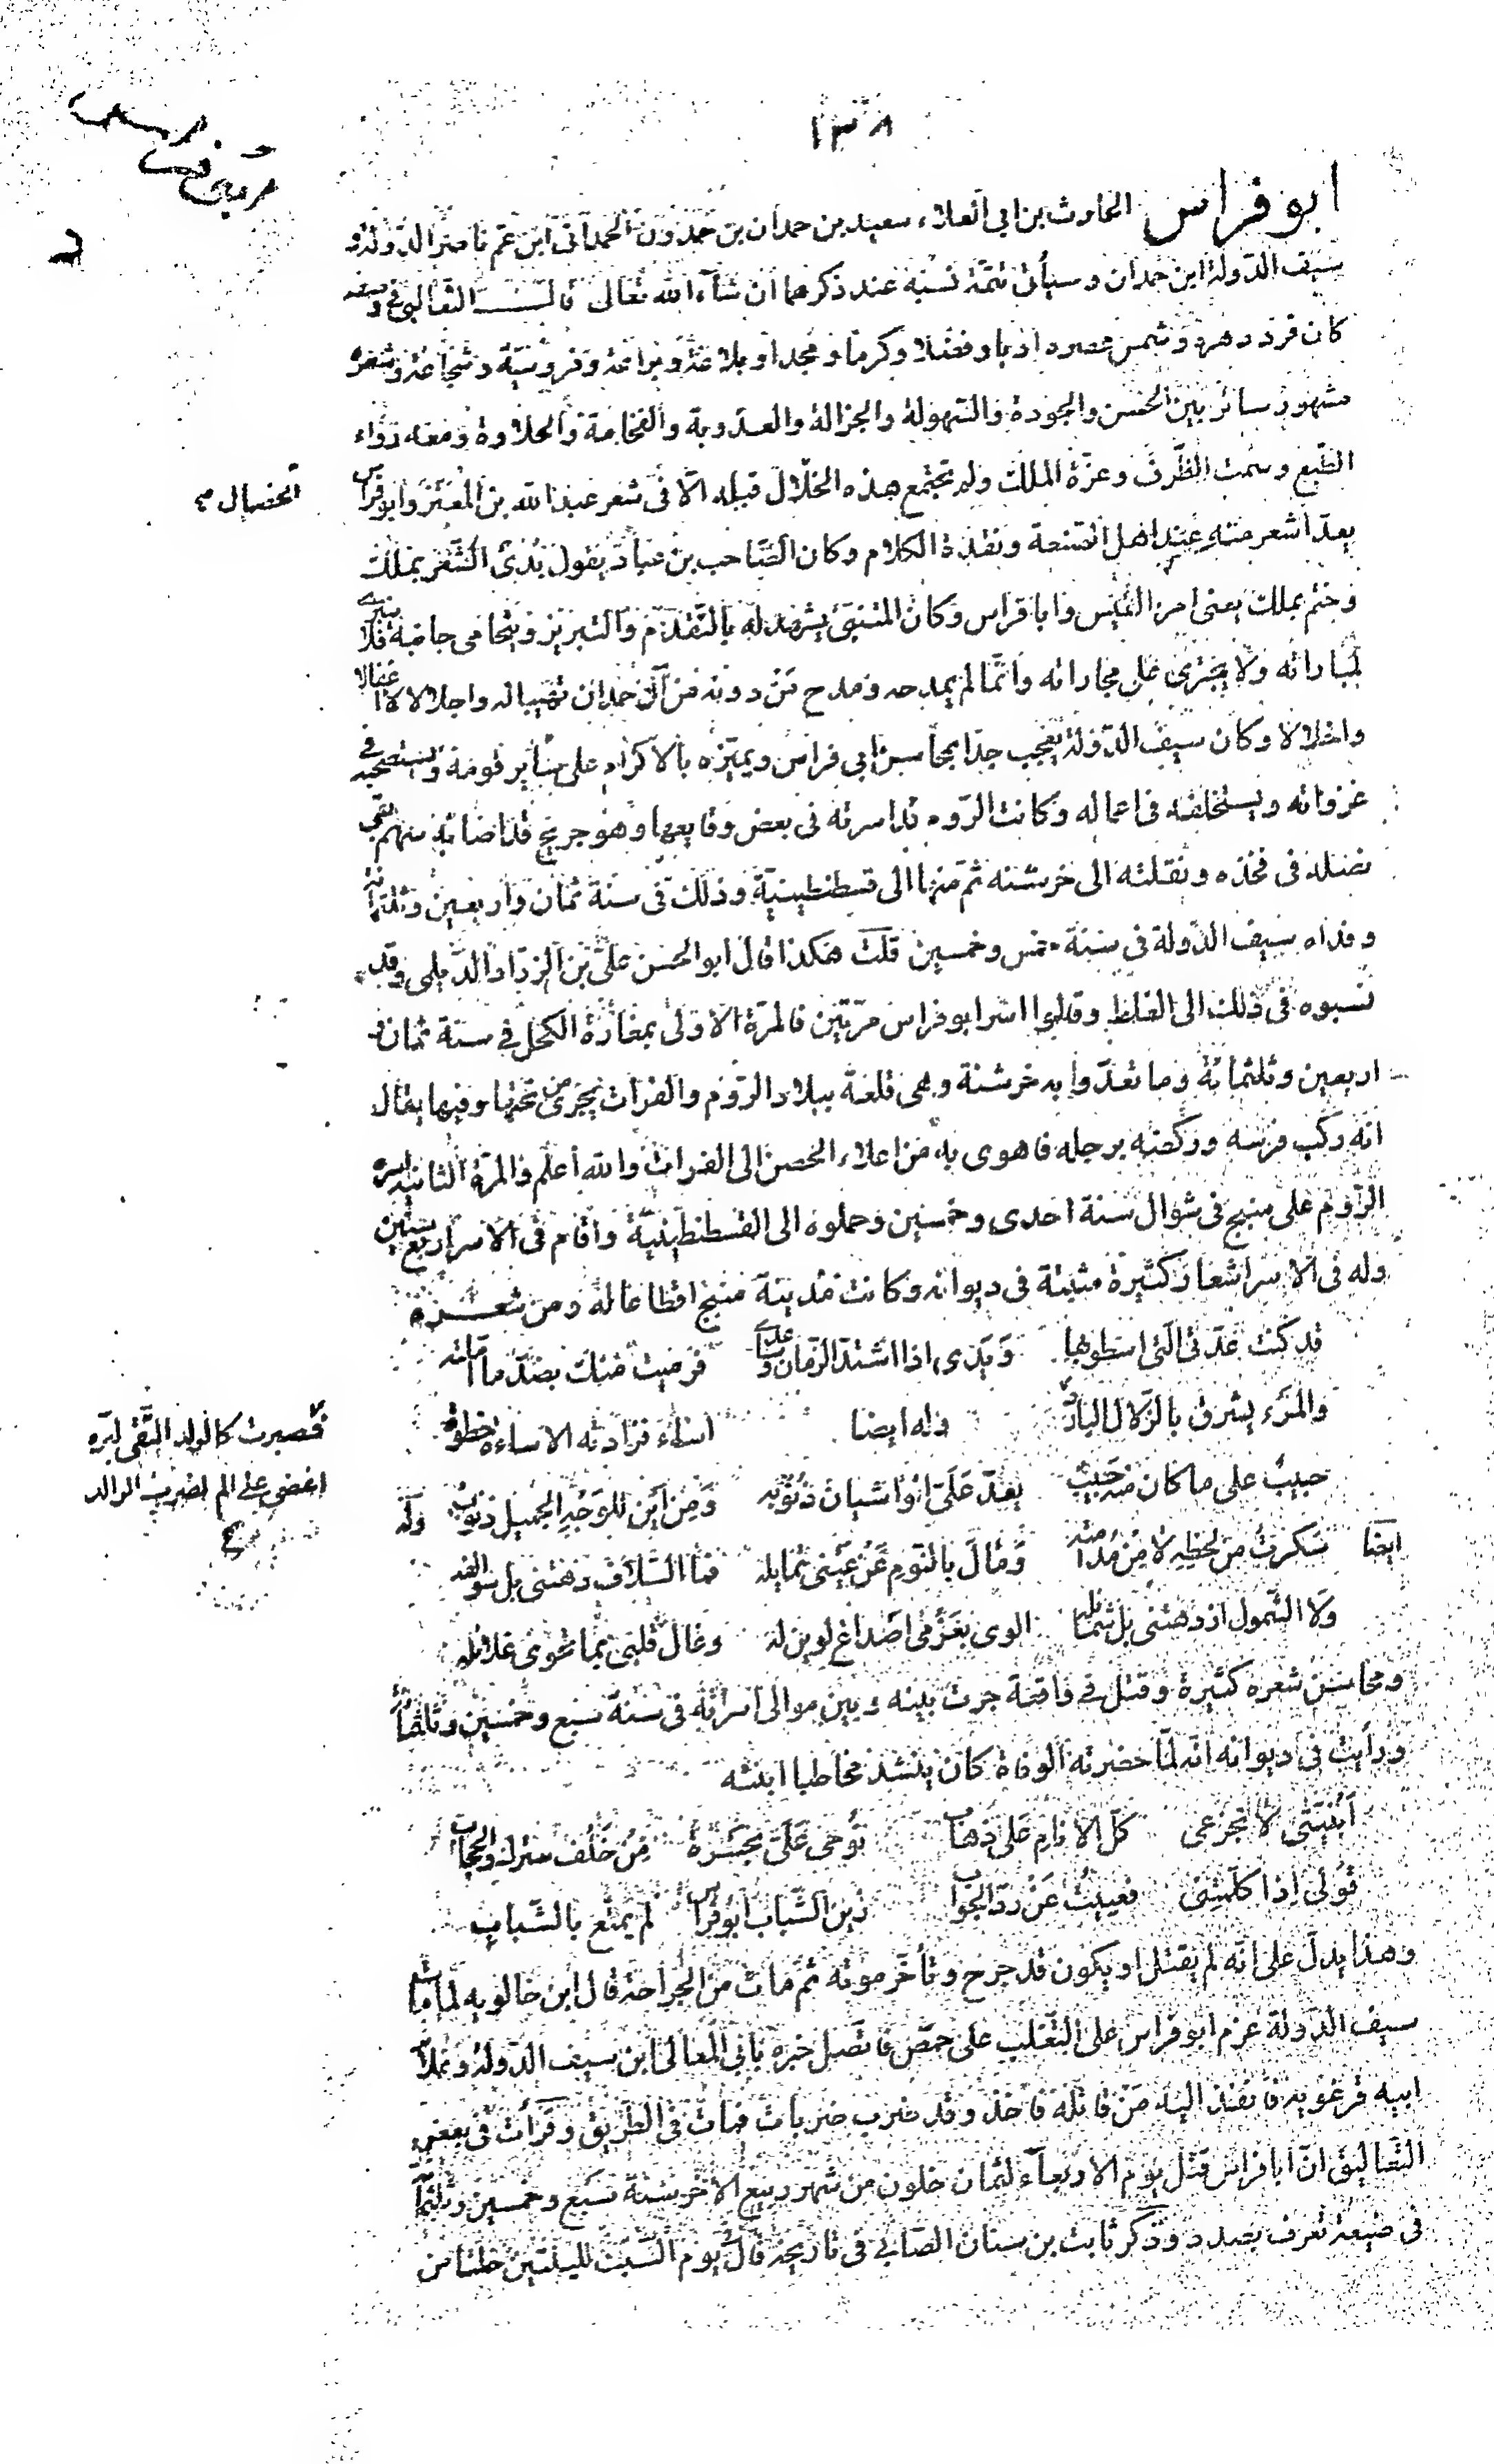 ١٣٨
ابو فراس الحارث بن ابي العلاء سعيد بن حمدان بن حمدون الحمداني ابن عم ناصر الدولة و
سيف الدولة ابن حمدان وسيأتي تتمة نسبه عند ذكرهما ان شآء الله تعالى قال الثعالبي في وصفه
كان فرد دهره وشمس عصره ادبا وفضلا وكرما ومجدا وبلاغة وبراعة وفروسية وشجاعة وشعره
مشهور سائر بين الحسن والجودة والسهولة والجزالة والعذوبة والفخامة والحلاوة ومعه رواء
الطبع وسمت الظرف وعزة الملك ولم تجتمع هذه الخلال قبله الا في شعر عبد الله بن المعتز وابو فراس
الخصال
يعد اشعر منه عند اهل الصنعة ونقدة الكلام وكان الصاحب بن عباد يقول بدئ الشعر بملك
وختم بملك يعني امرء القيس وابا فراس وكان المتنبي يشهد له بالتقدم والتبريز ويتحامى جانبه فلا ينبري
لمباراته ولا يجترئ على مجاراته وانما لم يمدحه ومدح من دونه من آل حمدان تهيبا له واجلالا لا اغفالا
واخلالا وكان سيف الدولة يعجب جدا بمحاسن ابي فراس ويميزه بالاكرام على سائر قومه ويستصحبه في
غزواته ويستخلفه في اعماله وكانت الروم قد اسرته في بعض وقايعها وهو جريح قد اصابه سهم بقي
نصله في فخذه ونقلته الى خرشنه ثم منها الى قسطنطينية وذلك في سنة ثمان واربعين وثلثمائة
وفداه سيف الدولة في سنة خمس وخمسين قلت هكذا قال ابو الحسن علي بن الزراد الديلمي وقد
نسبوه في ذلك الى الغلط وقالوا اسر ابو فراس مرتين فالمرة الاولى بمغارة الكحل في سنة ثمان و
اربعين وثلثمائة وما تعدوا به خرشنة وهي قلعة ببلاد الروم والفرات يجري من تحتها وفيها يقال
انه ركب فرسه وركضه برجله فاهوى به من اعلاء الحصن الى الفرات والله أعلم والمرة الثانية اسره
الروم على منبج في شوال سنة احدى وخمسين وحملوه الى القسطنطينية واقام في الاسر اربع سنين
وله في الاسر اشعار كثيرة مثبتة في ديوانه وكانت مدينة منبج اقطاعا له ومن شعره
قد كنت عدتي التي اسطو بها ويدي اذا اشتد الزمان وساعدي فرميت منك بضد ما املته
والمرء يشرق بالزلال البارد وله ايضا اساء فزادته الاساءة خطوة
فصبرت كالولد التقي لبره
اغضى على الم لضرب الوالد
حبيب على ما كان منه حبيب يعد علي الواشيان ذنوبه ومن اين للوجه الجميل ذنوب وله
ايضا سكرت من لحظه لا من مدامته ومال بالنوم عن عيني تمايله فما السلاف دهتني بل سوالفه
ولا الشمول ازدهتني بل شمائله الوى بعزمي اصداغ لوين له وغال قلبي بما تحوى غلائله
ومحاسن شعره كثيرة وقتل في واقعة جرت بينه وبين موالى اسرته في سنة سبع وخمسين وثلثمائة
ورأيت في ديوانه انه لما حضرته الوفاة كان ينشد مخاطبا ابنته
أبنيتي لا تجزعي كل الانام على ذهاب نوحي علي بحسرة من خلف سترك والحجاب
قولي اذا كلمتني فعييت عن رد الجواب زين الشباب ابو فراس لم يمتع بالشباب
وهذا يدل على انه لم يقتل او يكون قد جرح وتأخر موته ثم مات من الجراحة قال ابن خالويه لما مات
سيف الدولة عزم ابو فراس على التغلب على حمص فاتصل خبره بابي المعالى ابن سيف الدولة وغلام
ابيه قرغويه فانفذ اليه من قاتله فاخذ وقد ضرب ضربات فمات في الطريق وقرأت في بعض
التعاليق ان ابا فراس قتل يوم الاربعآء لثمان خلون من شهر ربيع الاخر سنة سبع وخمسين وثلثمائة
في ضيعة تعرف بصدد وذكر ثابت بن سنان الصابي في تاريخه قال يوم السبت لليلتين خلتا من